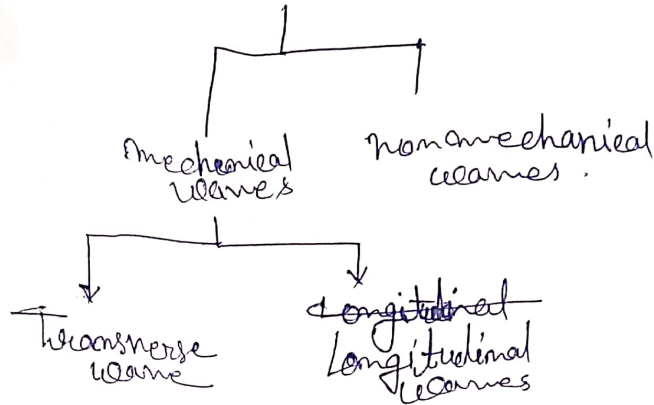 Mechanical
waves
nonmechanical
waves.
Transverse
wave
Longitudinal
Longitudinal
waves